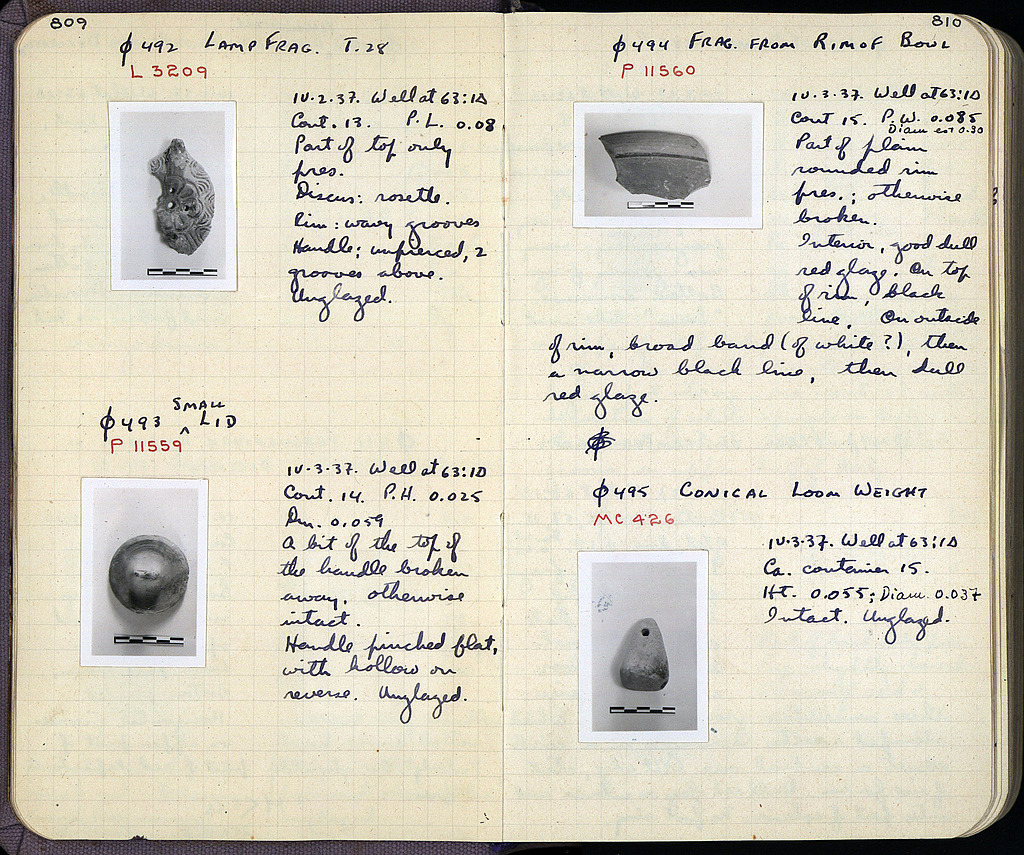 809
φ 492 LAMP FRAG. T. 28
L 3209
IV.2.37. Well at 63:ΙΔ
Cont. 13. P.L. 0.08
Part of top only
pres.
Discus: rosette.
Rim: wavy grooves
Handle; unpierced, 2
grooves above.
Unglazed.
φ 493 SMALL ^ LID
P 11559
IV.3.37. Well at 63:ΙΔ
Cont. 14. P.H. 0.025
Dm. 0.059
A bit of the top of
the handle broken
away, otherwise
intact.
Handle pinched flat,
with hollow on
reverse. Unglazed.
810
φ 494 FRAG. FROM RIM OF BOWL
P 11560
IV.3.37. Well at 63:ΙΔ
Cont 15. P.W. 0.085
Diam est 0.30
Part of plain
rounded rim
pres.; otherwise
broken.
Interior, good dull
red glaze. On top
of rim, black
line. On outside
of rim, broad band (of white?), then
a narrow black line, then dull
red glaze.
φ 495 CONICAL LOOM WEIGHT
MC 426
IV.3.37. Well at 63:ΙΔ
Ca. container 15.
Ht. 0.055; Diam. 0.037
Intact. Unglazed.